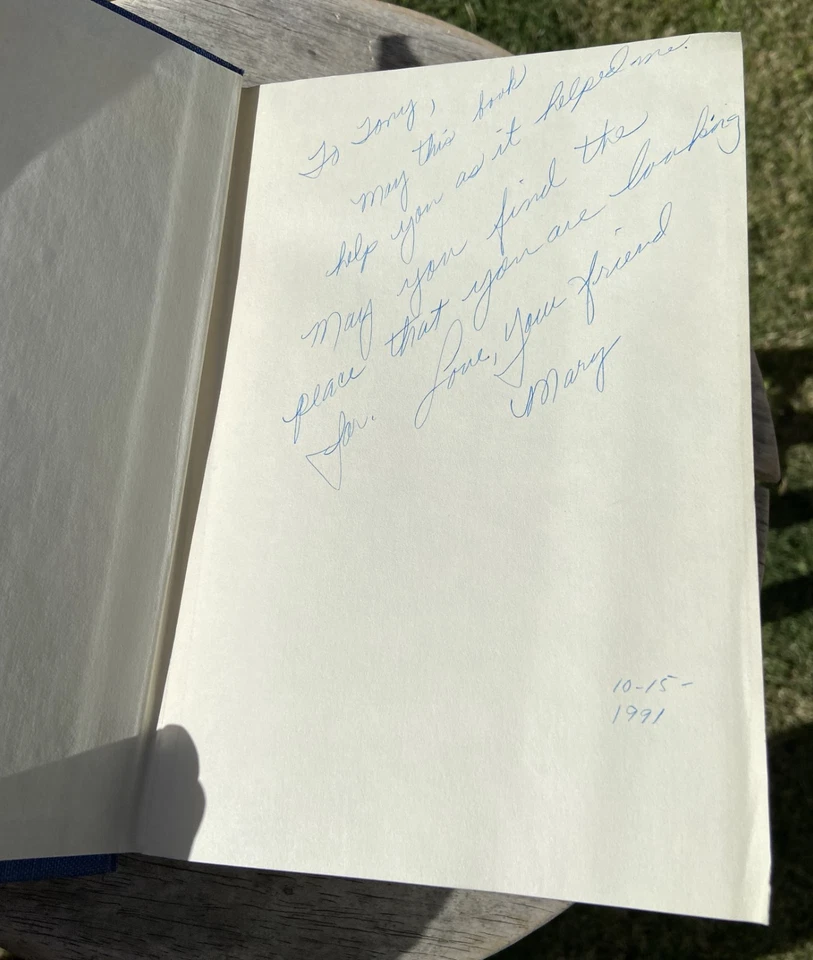 To Tony,
May this book
help you as it helped me.
May you find the
peace that you are looking
for. Love, your friend
Mary
10-15-
1991